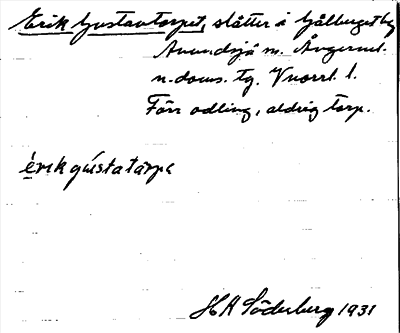 Erik Gustavtorpet, slåtter å Gålberget by
Anundsjö sn. Ångerml.
n. doms. tg. Vnorrl. l.
Förr odling, aldrig torp.
érɪk gústatårpɛ
HA Söderberg 1931